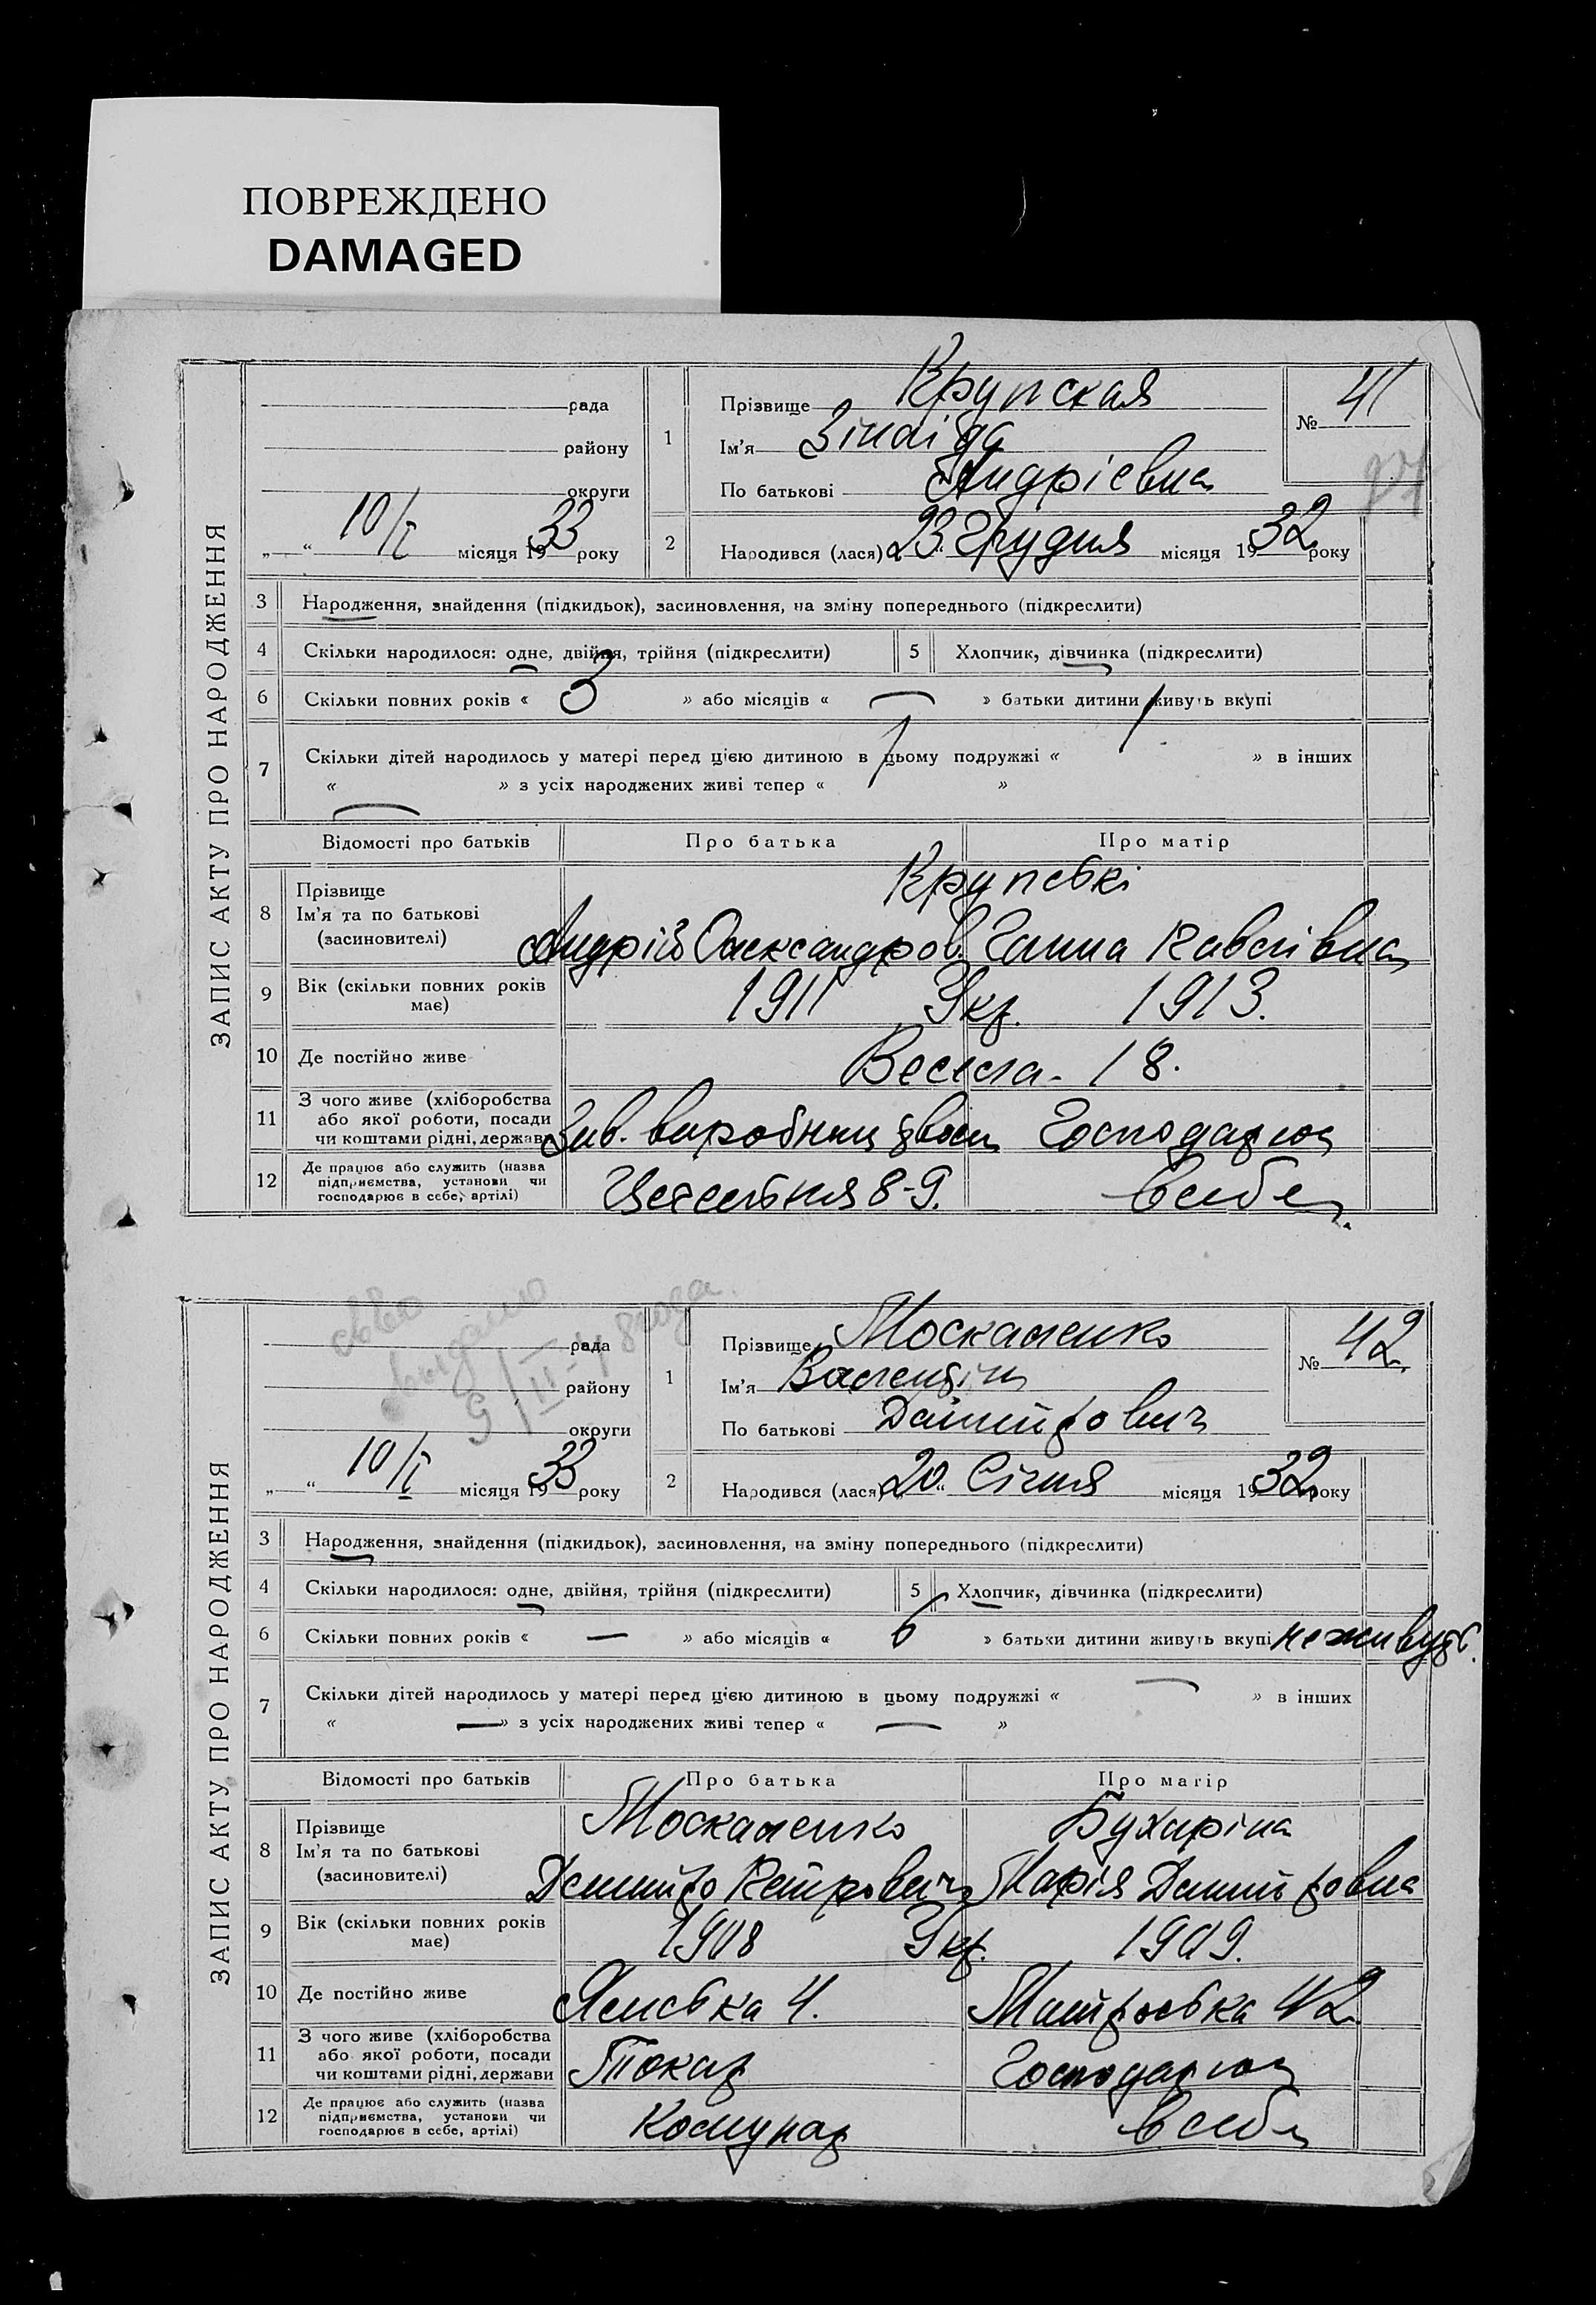 ПОВРЕЖДЕНО
DAMAGED
ЗАПИС АКТУ ПРО НАРОДЖЕННЯ
рада
району
округи
„ “ 10/I місяця 1933 року
1
Прізвище Крупская
Ім'я Зінаіда
По батькові Андрієвна
№ 41
2
Народився (лася) 23 Грудня місяця 1932 року
3 Народження, знайдення (підкидьок), засиновлення, на зміну попереднього (підкреслити)
4 Скільки народилося: одне, двійня, трійня (підкреслити)
5 Хлопчик, дівчинка (підкреслити)
6 Скільки повних років « 3 » або місяців « — » батьки дитини живуть вкупі
7 Скільки дітей народилось у матері перед цією дитиною в цьому подружжі « 1 » в інших
« — » з усіх народжених живі тепер « 1 »
Відомості про батьків Про батька Про матір
8 Прізвище
Ім'я та по батькові
(засиновителі)
Крупські
Андрій Олександров. Ганна Павлівна
9 Вік (скільки повних років має) 1911 Укр. 1913.
10 Де постійно живе Весела - 18.
11 З чого живе (хліборобства
або якої роботи, посади
чи коштами рідні, держави
Зав. виробництвом Господарює
12 Де працює або служить (назва
підприємства, установи чи
господарює в себе, артілі)
8-9. в себе
ЗАПИС АКТУ ПРО НАРОДЖЕННЯ
выдано
9/II-48 года.
рада
району
округи
„ “ 10/I місяця 1933 року
1
Прізвище Москаленко
Ім'я Валентін
По батькові Дмитрович
№ 42
2
Народився (лася) „20“ Січня місяця 1932 року
3 Народження, знайдення (підкидьок), засиновлення, на зміну попереднього (підкреслити)
4 Скільки народилося: одне, двійня, трійня (підкреслити)
5 Хлопчик, дівчинка (підкреслити)
6 Скільки повних років « — » або місяців « 6 » батьки дитини живуть вкупі не живуть.
7 Скільки дітей народилось у матері перед цією дитиною в цьому подружжі « — » в інших
« — » з усіх народжених живі тепер « — »
Відомості про батьків Про батька Про матір
8 Прізвище
Ім'я та по батькові
(засиновителі)
Москаленко Бухаріна
Дмитро Петрович Марія Дмитровна
9 Вік (скільки повних років має) 1908 Укр. 1909.
10 Де постійно живе Ямська 4. Митровська 42
11 З чого живе (хліборобства
або якої роботи, посади
чи коштами рідні, держави
Токар Господарює
12 Де працює або служить (назва
підприємства, установи чи
господарює в себе, артілі)
Комунар в себе